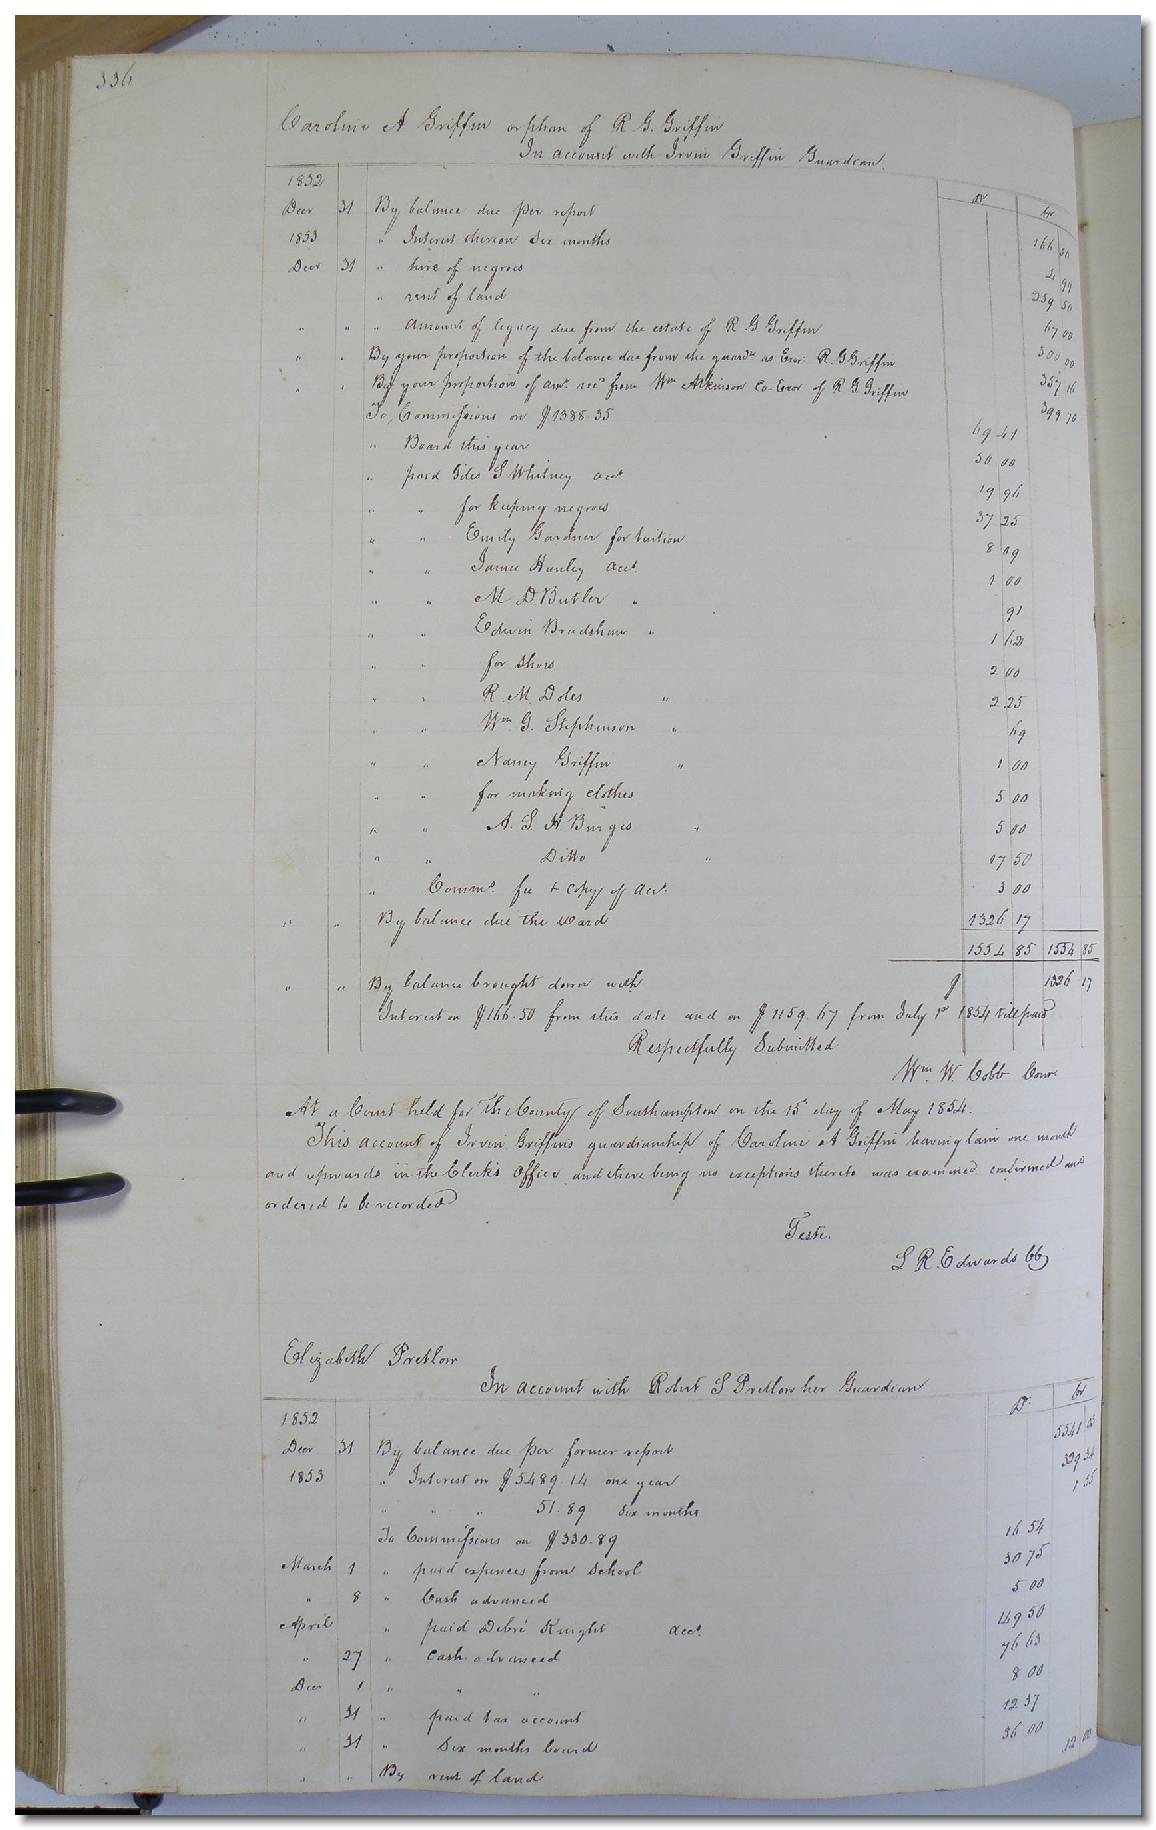 336
Caroline A Griffin orphan of R. G. Griffin
In account with Irvin Griffin Guardian.
Dr Cr
1852
Decr 31 By balance due per report 166 50
1853 " Interest thereon Six months 4 99
Decr 31 " hire of negroes 259 50
" rent of land 67 00
" " " amount of legacy due from the estate of R G Griffin 300 00
" " By your proportion of the balance due from the guardn as Exor R. G. Griffin 357 16
" " By your proportion of amt recd from Wm Atkinson Co-Exor of R G Griffin 399 70
To Commissions on $1388.35 69 41
" Board this year 50 00
" paid Giles S Whitney acct 19 96
" " for keeping negroes 37 25
" " Emily Gardner for tuition 8 09
" " James Hunley acct 1 00
" " M. D. Butler " 91
" " Edwin Bradshaw " 1 62
" " for shoes 2 00
" " R. M. Doles " 2 25
" " Wm G. Stephenson " 69
" " Nancy Griffin " 1 00
" " for making clothes 5 00
" " A. S. H. Burges " 5 00
" " Ditto " 17 50
" Commrs fee & copy of acct. 3 00
" " By balance due the Ward 1326 17
1554 85 1554 85
" " By balance brought down with $ 1326 17
Interest on $166.50 from this date and on $1159.67 from July 1st 1854 till paid
Respectfully Submitted
Wm. W. Cobb Comr
At a Court held for the County of Southampton on the 15 day of May 1854.
This account of Irvin Griffins guardianship of Caroline A Griffin having lain one month
and upwards in the Clerks Office and there being no exceptions thereto was examined confirmed and
ordered to be recorded
Teste.
L R. Edwards CC
Elizabeth Pretlow
In account with Robert S Pretlow her Guardian
Dr Cr
1852
Decr 31 By balance due per former report 5541
1853 " Interest on $5489.14 one year 329 34
" " " 51.89 Six months 1 55
To Commissions on $330.89 16 54
March 1 " paid expences from School 30 75
" 8 " Cash advanced 5 00
April " paid Debre Knight acct. 49 50
" 27 " Cash advanced 76 63
Decr 1 " " " 8 00
" 31 " paid tax account 12 37
" 31 " Six months board 36 00
" " By rent of land 12